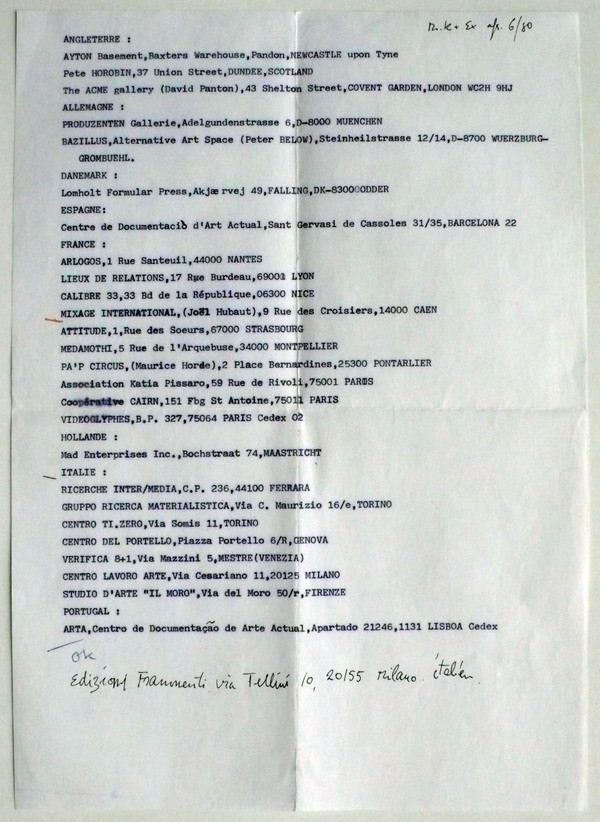 6/80
ANGLETERRE :
AYTON Basement,Baxters Warehouse,Pandon,NEWCASTLE upon Tyne
Pete HOROBIN,37 Union Street,DUNDEE,SCOTLAND
The ACME gallery (David Panton),43 Shelton Street,COVENT GARDEN,LONDON WC2H 9HJ
ALLEMAGNE :
PRODUZENTEN Gallerie,Adelgundenstrasse 6,D-8000 MUENCHEN
BAZILLUS,Alternative Art Space (Peter BELOW),Steinheilstrasse 12/14,D-8700 WUERZBURG-
GROMBUEHL.
DANEMARK :
Lomholt Formular Press,Akjærvej 49,FALLING,DK-8300 ODDER
ESPAGNE:
Centre de Documentació d'Art Actual,Sant Gervasi de Cassoles 31/35,BARCELONA 22
FRANCE :
ARLOGOS,1 Rue Santeuil,44000 NANTES
LIEUX DE RELATIONS,17 Rue Burdeau,69001 LYON
CALIBRE 33,33 Bd de la République,06300 NICE
MIXAGE INTERNATIONAL,(Joël Hubaut),9 Rue des Croisiers,14000 CAEN
ATTITUDE,1,Rue des Soeurs,67000 STRASBOURG
MEDAMOTHI,5 Rue de l'Arquebuse,34000 MONTPELLIER
PA'P CIRCUS,(Maurice Horde),2 Place Bernardines,25300 PONTARLIER
Association Katia Pissaro,59 Rue de Rivoli,75001 PARIS
Coopérative CAIRN,151 Fbg St Antoine,75011 PARIS
VIDEOGLYPHES,B.P. 327,75064 PARIS Cedex 02
HOLLANDE :
Mad Enterprises Inc.,Bochstraat 74,MAASTRICHT
ITALIE :
RICERCHE INTER/MEDIA,C.P. 236,44100 FERRARA
GRUPPO RICERCA MATERIALISTICA,Via C. Maurizio 16/e,TORINO
CENTRO TI.ZERO,Via Somis 11,TORINO
CENTRO DEL PORTELLO,Piazza Portello 6/R,GENOVA
VERIFICA 8+1,Via Mazzini 5,MESTRE(VENEZIA)
CENTRO LAVORO ARTE,Via Cesariano 11,20125 MILANO
STUDIO D'ARTE "IL MORO",Via del Moro 50/r,FIRENZE
PORTUGAL :
ARTA,Centro de Documentação de Arte Actual,Apartado 21246,1131 LISBOA Cedex
OK
Edizioni Frammenti via Tellini 10, 20155 Milano. italien.